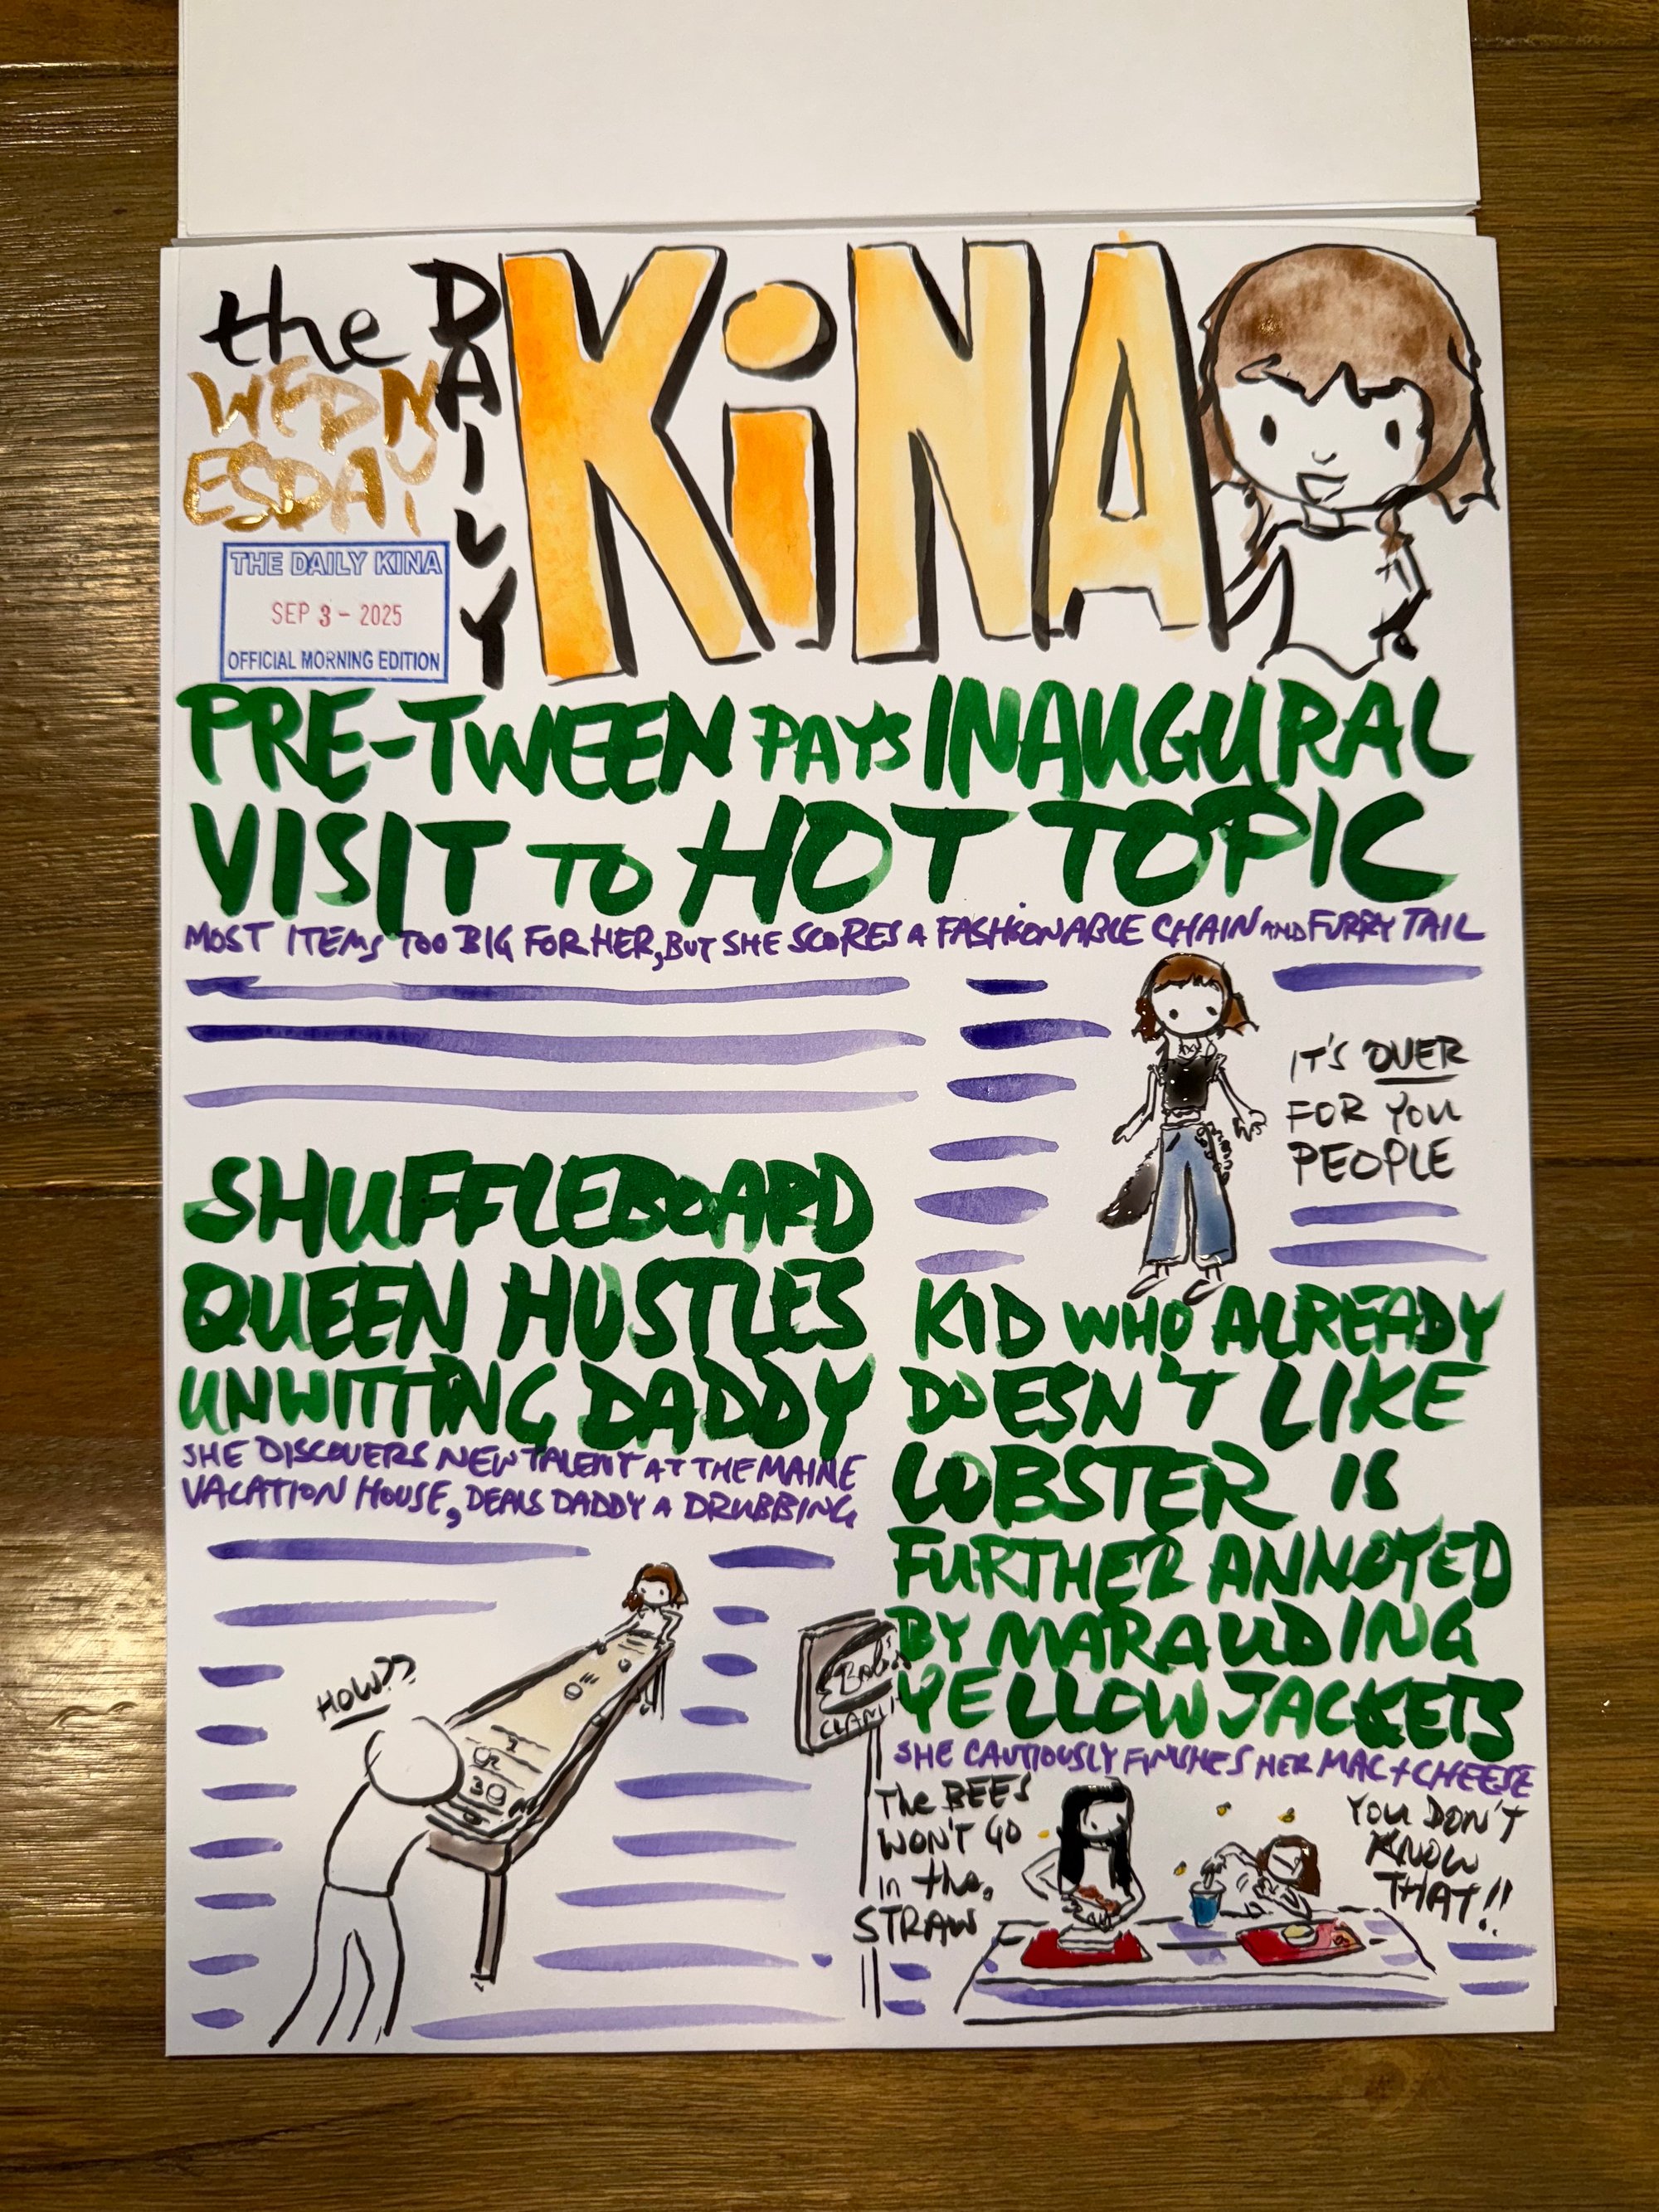 the
DAILY
KiNA
WEDN
ESDAY
THE DAILY KINA
SEP 3 - 2025
OFFICIAL MORNING EDITION
PRE-TWEEN PAYS INAUGURAL
VISIT TO HOT TOPIC
MOST ITEMS TOO BIG FOR HER, BUT SHE SCORES A FASHIONABLE CHAIN AND FURRY TAIL
IT'S OVER
FOR YOU
PEOPLE
SHUFFLEBOARD
QUEEN HUSTLES
UNWITTING DADDY
SHE DISCOVERS NEW TALENT AT THE MAINE
VACATION HOUSE, DEALS DADDY A DRUBBING
HOW??
2
3
KID WHO ALREADY
DOESN'T LIKE
LOBSTER IS
FURTHER ANNOYED
BY MARAUDING
YELLOW JACKETS
SHE CAUTIOUSLY FINISHES HER MAC + CHEESE
CLAM
The BEES
WON'T GO
in the
STRAW
YOU DON'T
KNOW
THAT!!